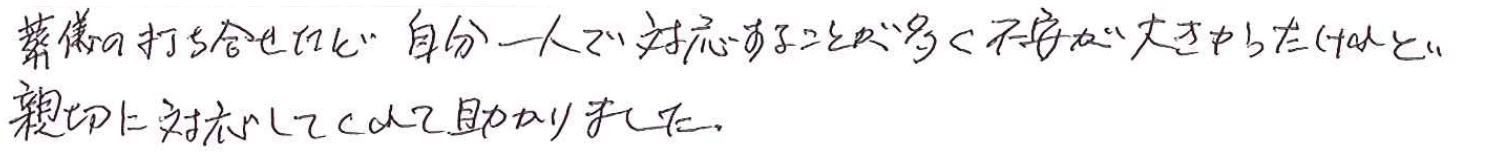 葬儀の打ち合せなど 自分一人で対応することが多く不安が大きかったけれど
親切に対応してくれて助かりました。